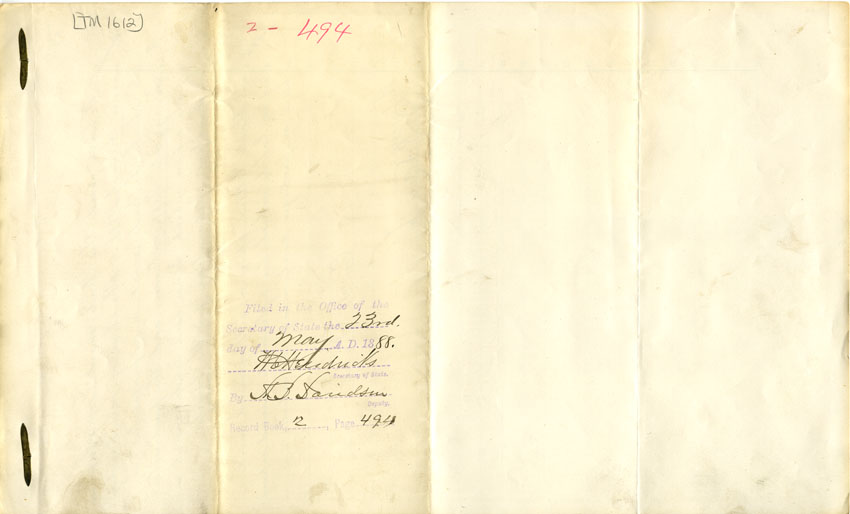 [TM 1612]
2 - 494
Filed in the Office of the
Secretary of State the 23rd.
day of May A. D. 1888.
H B Hendricks
Secretary of State.
By A. B. Davidson
Deputy.
Record Book, 2, Page 494